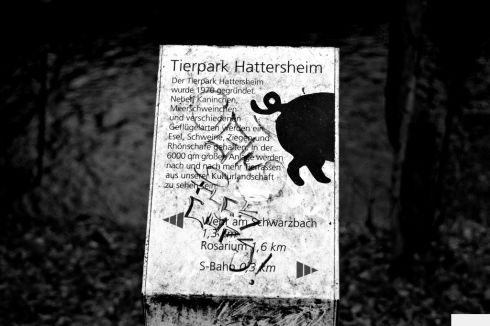 Tierpark Hattersheim
Der Tierpark Hattersheim
wurde 1970 gegründet.
Neben Kaninchen,
Meerschweinchen
und verschiedenen
Geflügelarten werden ein
Esel, Schweine, Ziegen und
Rhönschafe gehalten. In der
6000 qm großen Anlage werden
nach und nach mehr Tierrassen
aus unserer Kulturlandschaft
zu sehen sein.
Wehr am Schwarzbach
1,3 km
Rosarium 1,6 km
S-Bahn 0,3 km